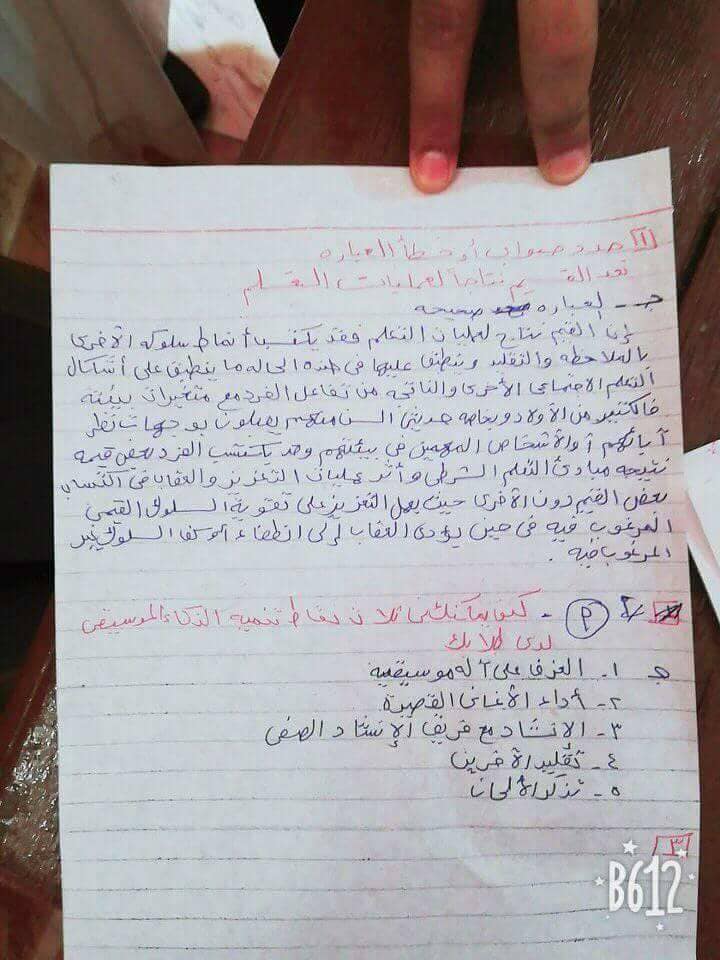 ١ حدد صواب أو خطأ العباره
تعد القيم نتاجاً لعمليات التعلم
جـ - العباره صحيحه
إن القيم نتاج لعمليات التعلم فقد يكتسب أنماط سلوكه الأخرى
بالملاحظه والتقليد وتنطبق عليها فى هذه الحاله ما ينطبق على أشكال
التعلم الاجتماعى الأخرى والناتجه من تفاعل الفرد مع متغيرات بيئته
فالكثير من الأولاد وبخاصه حديثى السن منهم يميلون بوجهات نظر
آبائهم أو الأشخاص المهمين فى بيئتهم وقد يكتسب الفرد بعض قيمه
نتيجه مبادئ التعلم الشرطى وأثر عمليات التعزيز والعقاب فى اكتساب
بعض القيم دون الأخرى حيث يعمل التعزيز على تقوية السلوك القيمى
المرغوب فيه فى حين يؤدى العقاب إلى انطفاء أو كف السلوك غير
المرغوب فيه .
٢ م - كيف يمكنك فى ثلاث نقاط تنميه الذكاء الموسيقى
لدى طلابك
جـ ١- العزف على آله موسيقيه
٢- أداء الأغانى القصيرة
٣- الانشاد مع فريق الإنشاد الصفى
٤- تقليد الآخرين
٥- تذكر الألحان
٣
B612